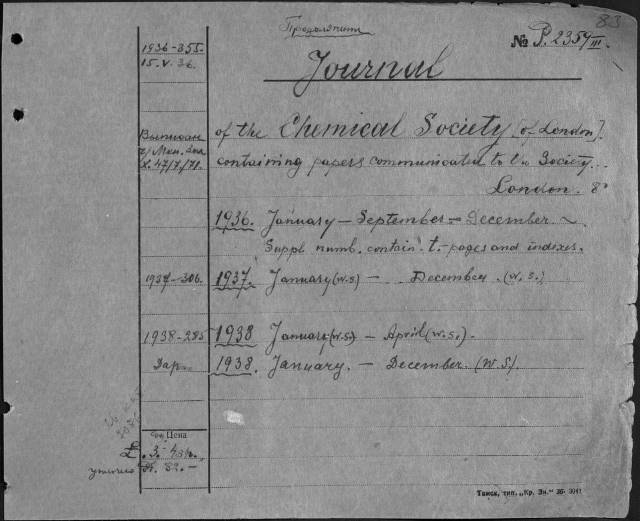 83
Продолжении
№ P. 2359/III.
1936-355
15.V.36.
Journal
Выписан
of the Chemical Society [of London].
X.47/7,/71.
containing papers communicated to the Society.
London. 8°
1936. January — September — December.
Suppl. numb. contain. t.-pages and indexes.
1937-306. 1937. January (W.S) — December. (W.S.)
1938-285 1938 January (W.S.) — April (W.S.).
Дар. 1938. January. — December. (W.S).
Цена
Томск, тип. „Кр. Зн.“ 36-3041